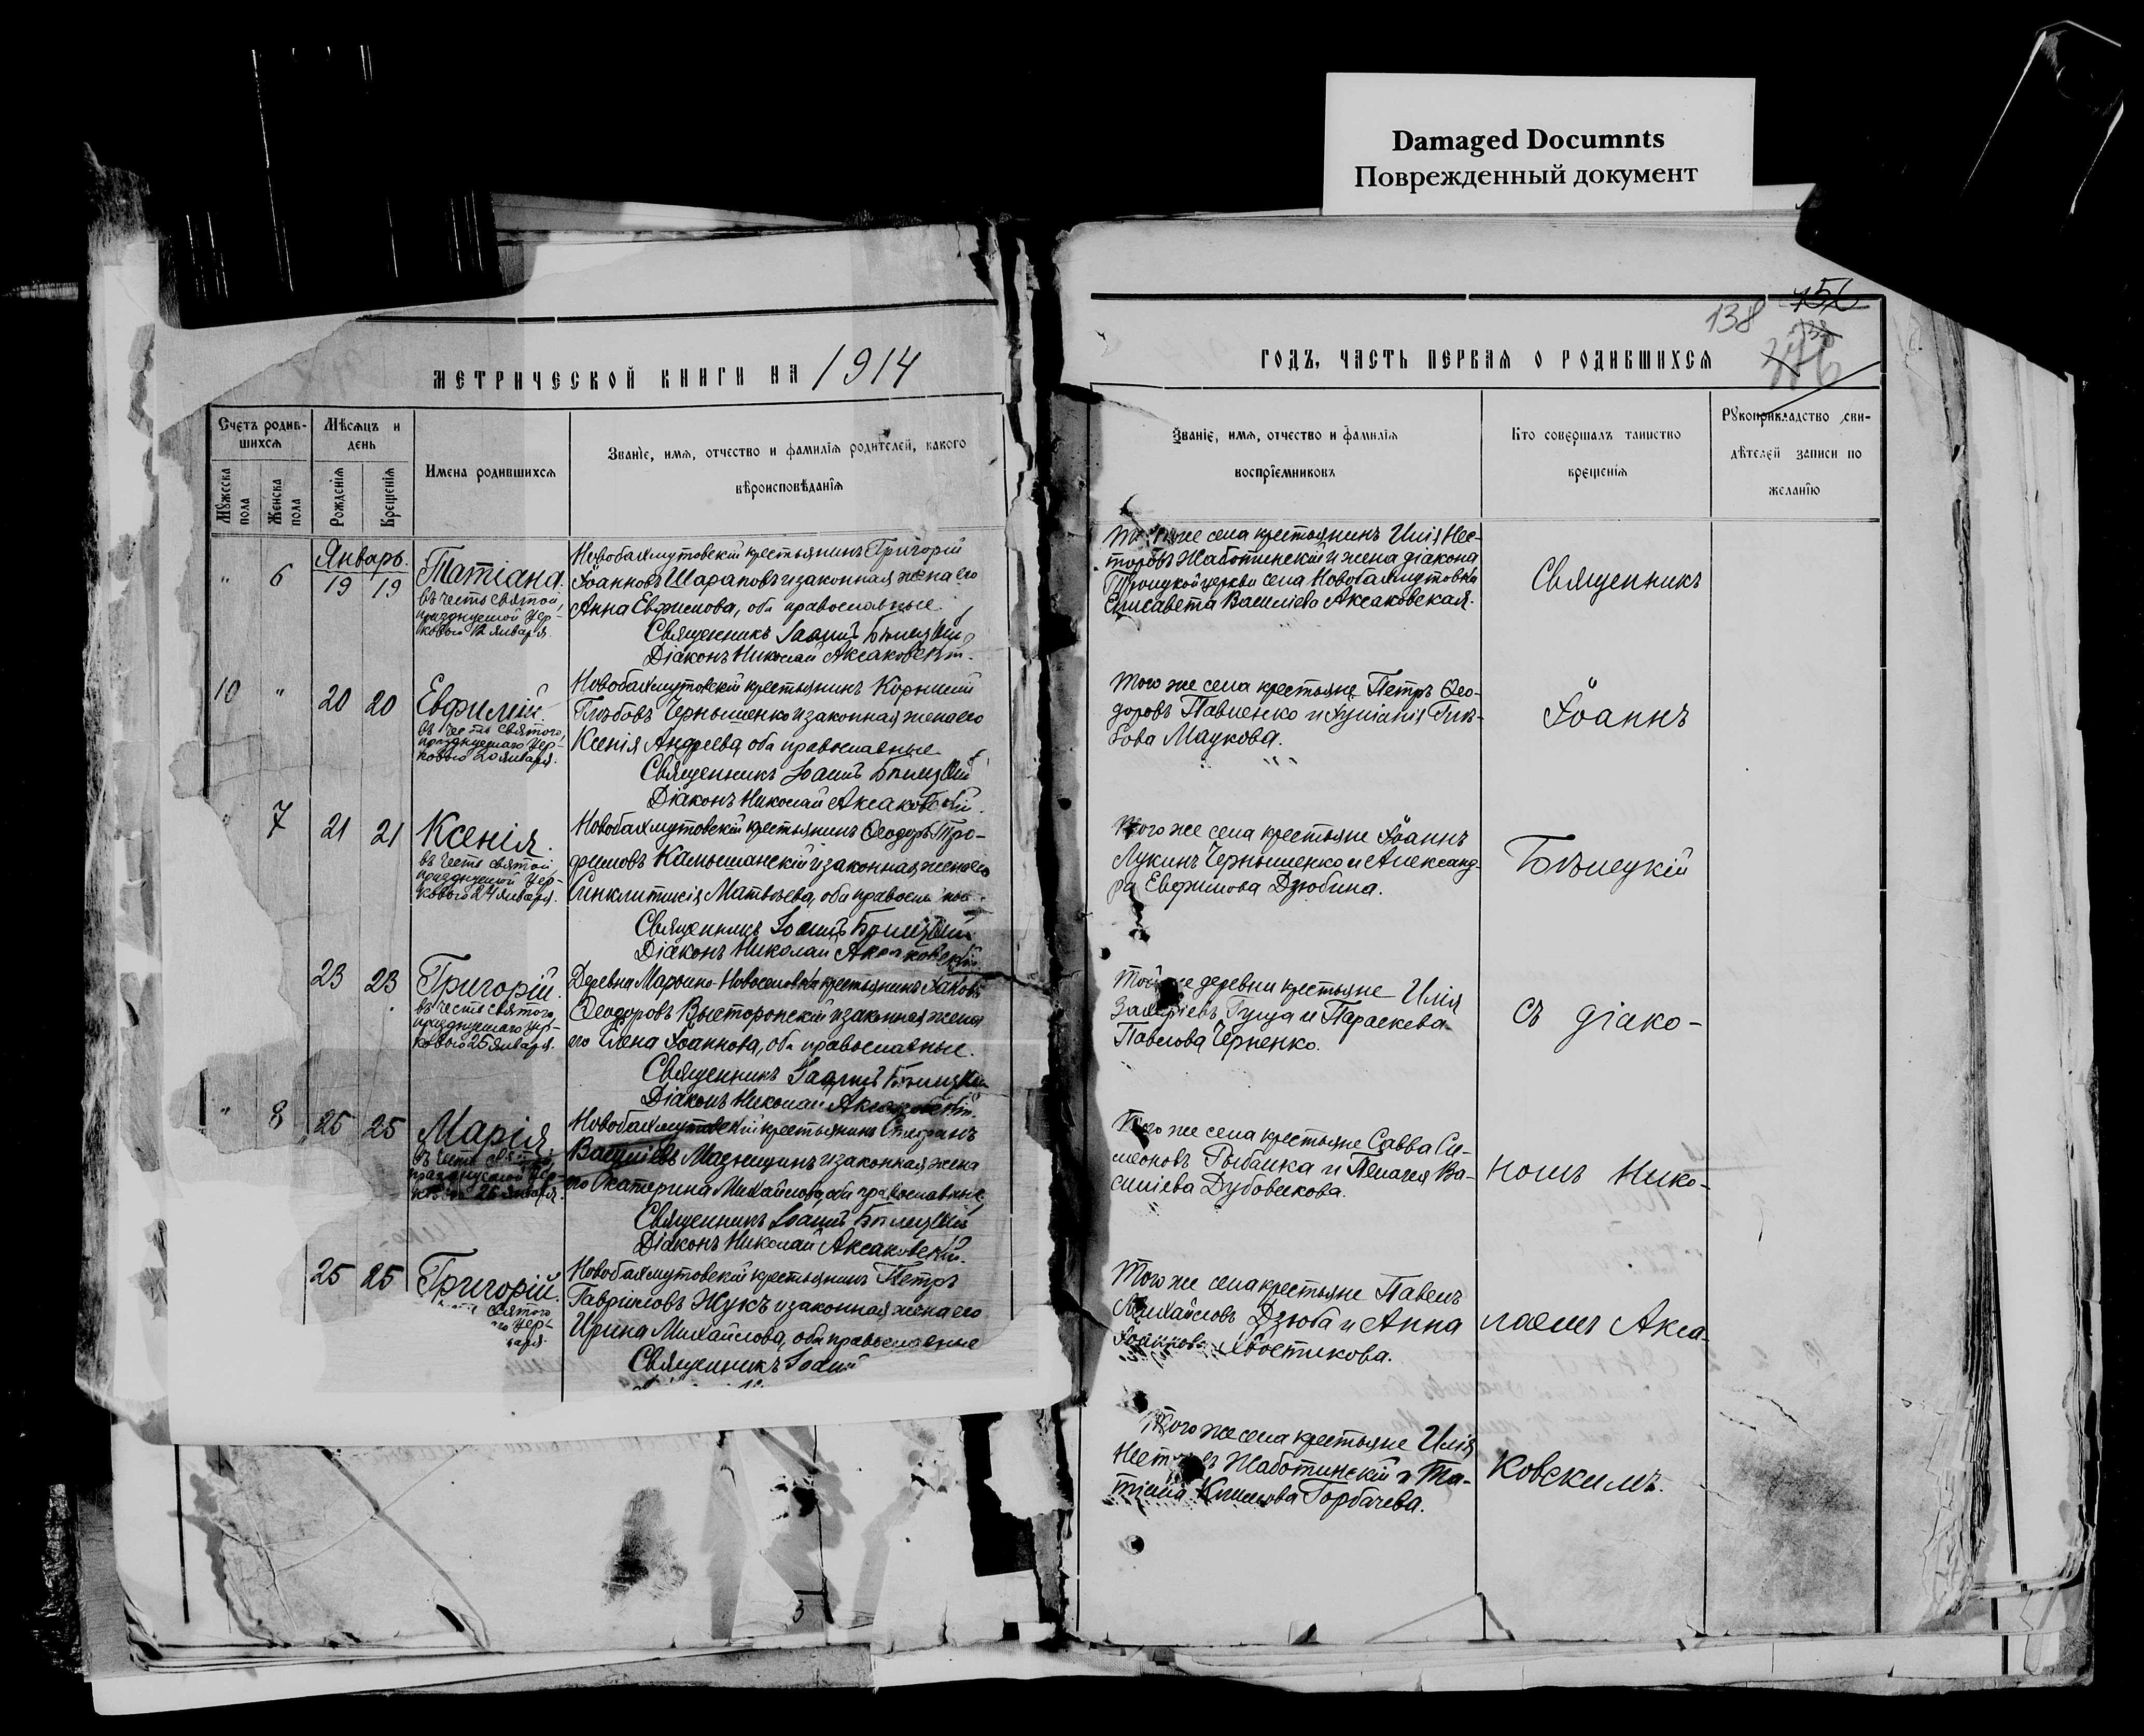 Damaged Documnts
Поврежденный документ
138
МЕТРИЧЕСКОЙ КНИГИ НА 1914
Счетъ родив-
шихся
Мужеска
пола
Женска
пола
Мѣсяцъ и
день
Рожденія
Крещенія
Имена родившихся
Званіе, имя, отчество и фамилія родителей, какого
вѣроисповѣданія
Январь.
" 6 19 19
Татіана.
въ честь святой,
празднуемой Цер-
ковью 12 января.
Новобахмутовскій крестьянинъ Григорій
Іоанновъ Шараповъ и законная жена его
Анна Евфимова, оба православные.
Священникъ Іоаннъ Бѣлецкій
Діаконъ Николай Аксаковскій.
10 " 20 20
Евфимій.
въ честь святого,
празднуемаго Цер-
ковью 20 января.
Новобахмутовскій крестьянинъ Корнилій
Глѣбовъ Чернышенко и законная жена его
Ксенія Андреева, оба православные.
Священникъ Іоаннъ Бѣлецкій
Діаконъ Николай Аксаковскій.
7 21 21
Ксенія.
въ честь святой,
празднуемой Цер-
ковью 24 января.
Новобахмутовскій крестьянинъ Ѳеодоръ Тро-
фимовъ Камышанскій и законная жена его
Синклитикія Матвѣева, оба православные.
Священникъ Іоаннъ Бѣлецкій
Діаконъ Николай Аксаковскій.
23 23
Григорій.
въ честь святого,
празднуемаго Цер-
ковью 25 января.
Деревни Марьино-Новоселовки крестьянинъ Іаковъ
Ѳеодоровъ Высторопскій и законная жена
его Елена Іоаннова, оба православные.
Священникъ Іоаннъ Бѣлецкій
Діаконъ Николай Аксаковскій.
" 8 25 25
Марія
въ честь святой,
празднуемой Цер-
26 января.
Новобахмутовскій крестьянинъ Стефанъ
Мазницинъ и законная жена
его Екатерина Михайлова, оба православные
Священникъ Іоаннъ Бѣлецкій
Діаконъ Николай Аксаковскій.
25 25
Григорій.
святого
го Цер-
варя.
Новобахмутовскій крестьянинъ Петръ
Гавріиловъ Жукъ и законная жена его
Ирина Михайлова, оба православные
Священникъ Іоаннъ
ГОДЪ, ЧАСТЬ ПЕРВАЯ О РОДИВШИХСЯ
Званіе, имя, отчество и фамилія
воспріемниковъ
Кто совершалъ таинство
крещенія
Рукоприкладство сви-
дѣтелей записи по
желанію
Того же села крестьянинъ Илія Нес-
торовъ Жаботинскій и жена діакона
Троицкой церкви села Новобахмутовки
Елисавета Василіева Аксаковская.
Того же села крестьяне Петръ Ѳео-
доровъ Павленко и Іуліанія Глѣ-
бова Маукова.
Того же села крестьяне Іоаннъ
Лукинъ Чернышенко и Александ-
ра Евфимова Дзюбина.
Той же деревни крестьяне Илія
Захаріевъ Гуща и Параскева
Павлова Черненко.
Того же села крестьяне Савва Си-
меоновъ Рыбалка и Пелагея Ва-
силіева Дубовикова.
Того же села крестьяне Павелъ
Михайловъ Дзюба и Анна
Іоаннова Хвостикова.
Того же села крестьяне Илія
Нест въ Жаботинскій и Та-
тіана Климова Горбачева.
Священникъ
Іоаннъ
Бѣлецкій
съ діако-
номъ Нико-
лаемъ Акса-
ковскимъ.